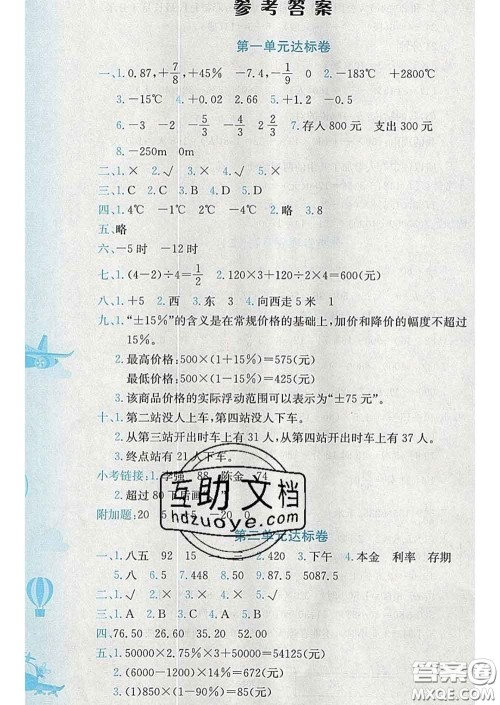 参考答案
第一单元达标卷
一、1. 0.87, +7/8, +45% −7.4, −1/9 0 2. −183℃ +2800℃
3. −15℃ 4. +0.02 2.66 5. +1.2 −0.5
6. −3 −2 −5/3 −4/3 2 2/3 7. 存入 800 元 支出 300 元
8. −250m 0m
二、1. × 2. √ 3. × 4. √ 5. ×
三、1. C 2. C 3. C 4. D 5. D
四、1. 4℃ −1℃ 2℃ −4℃ 2. 略 3. 8
五、略
六、−5 时 −12 时
七、1. (4−2)÷4=1/2 2. 120×3+120÷2×4=600(元)
八、1. +5 2. 西 3. 东 3 4. 向西走 5 米 1
九、1. “±15%”的含义是在常规价格的基础上,加价和降价的幅度不超过
15%。
2. 最高价格:500×(1+15%)=575(元)
最低价格:500×(1−15%)=425(元)
3. 该商品价格的实际浮动范围可以表示为“±75 元”。
十、1. 第二站没人上车,第四站没人下车。
2. 从第三站开出时车上有 31 人,从第四站开出时车上有 37 人。
3. 终点站有 21 人下车。
小考链接:1. 李强 88 陈金 74
2. 超过 80
附加题:20 5 15 −20 0
互助文档
hdzuoye.com
第二单元达标卷
一、1. 八五 92 15 2. 420 3. 下午 4. 本金 利率 存期
5. 八 6. 5 7. 448 8. 50 9. 87.5 5087.5
二、1. × 2. √ 3. × 4. × 5. ×
三、1. A 2. B 3. C 4. B
四、76.50 26.60 35.20 52.00
五、1. 50000×2.75%×3+50000=54125(元)
2. (6000−1200)×14%=672(元)
3. (1)850×(1−90%)=85(元)
答案圈
MXQE.COM